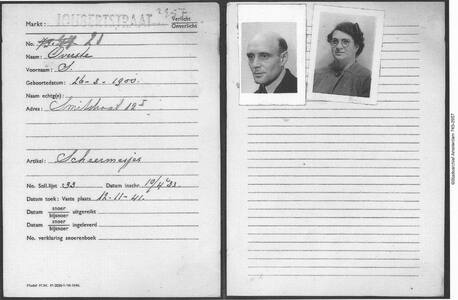 Markt: JOUBERTSTRAAT Verlicht
Onverlicht
No. 21
Naam:
Voornaam: S.
Geboortedatum: 26-2-1900
Naam echtg(e):
Adres: Smitstraat 12 I
Artikel: Scheermesjes
No. Soll.lijst 133 Datum inschr. 10/4 '33
Datum toek: Vaste plaats 12-11-41.
Datum snoer uitgereikt
bijsnoer
Datum snoer ingeleverd
bijsnoer
No. verklaring snoerenboek
Model M.W.
©Stadsarchief Amsterdam